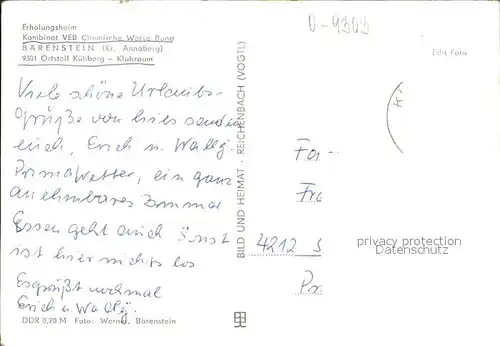 Erholungsheim
Kombinat VEB Chemische Werke Buna
BÄRENSTEIN (Kr. Annaberg)
9301 Ortsteil Kühberg – Klubraum
0-9303
Echt Foto
Viele schöne Urlaubs-
grüße von hier senden
euch, Erich u. Wally.
Prima Wetter, ein ganz
annehmbares Zimmer
Essen geht auch Sonst
ist hier nichts los
Es grüßt nochmal
Erich u. Wally.
DDR 0,20 M Foto: Bärenstein
BILD UND HEIMAT · REICHENBACH (VOGTL)
Fa
Fr
4212 S
Pr
privacy protection
Datenschutz